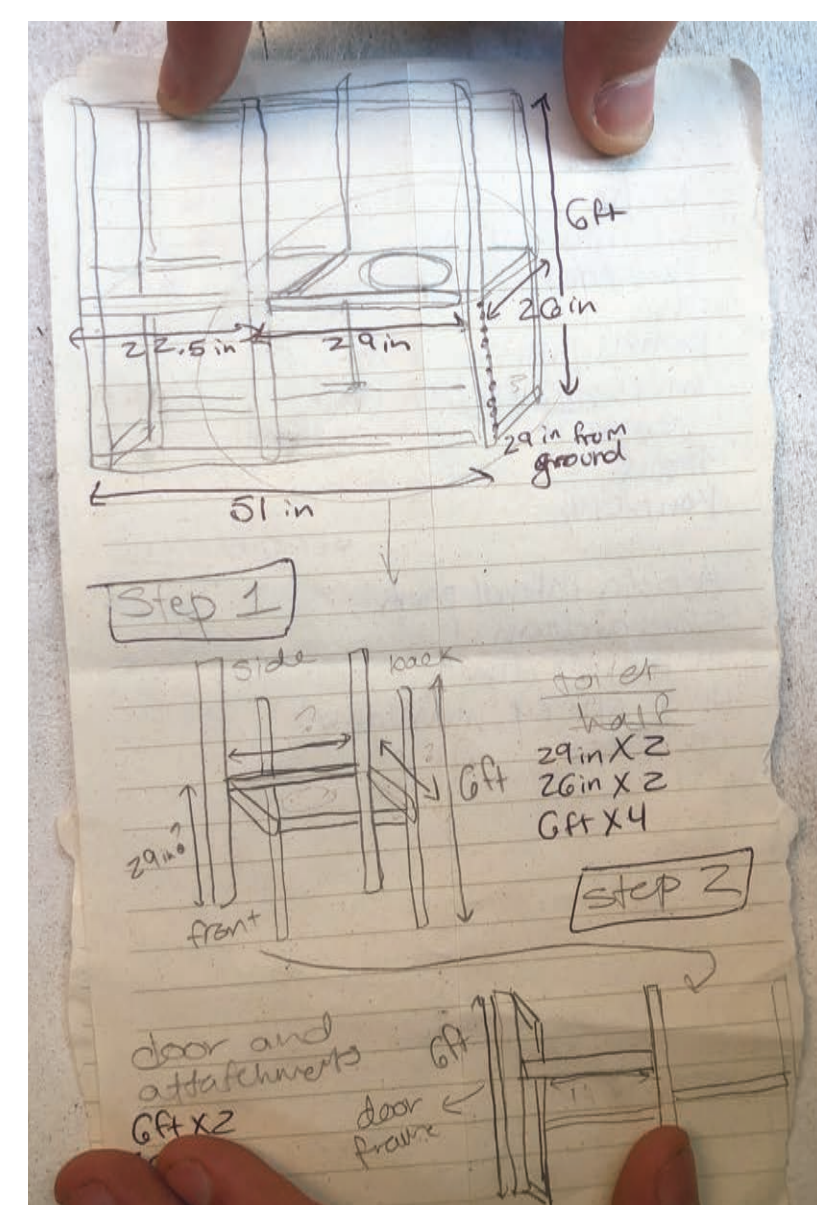 6ft
26 in
22.5 in
29 in
29 in from
ground
51 in
Step 1
side
back
toilet
half
29in X 2
26in X 2
6ft X 4
?
?
6ft
29in?
front
Step 2
door and
attatchments
6ft X 2
6ft
door
frame